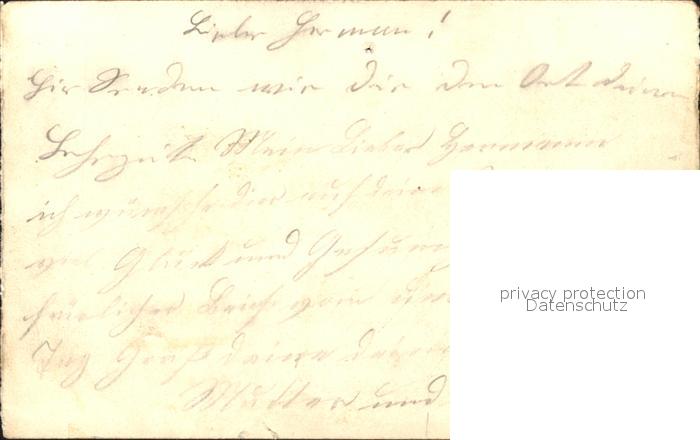 Lieber Herman!
Hir Senden wir dir den Ort deiner
Lehrzeit. Mein Lieber Hermann
ich wünsche dir auf deine
viel Glück und Gesun
und
Tag Gruß deine
Mutter und
privacy protection
Datenschutz